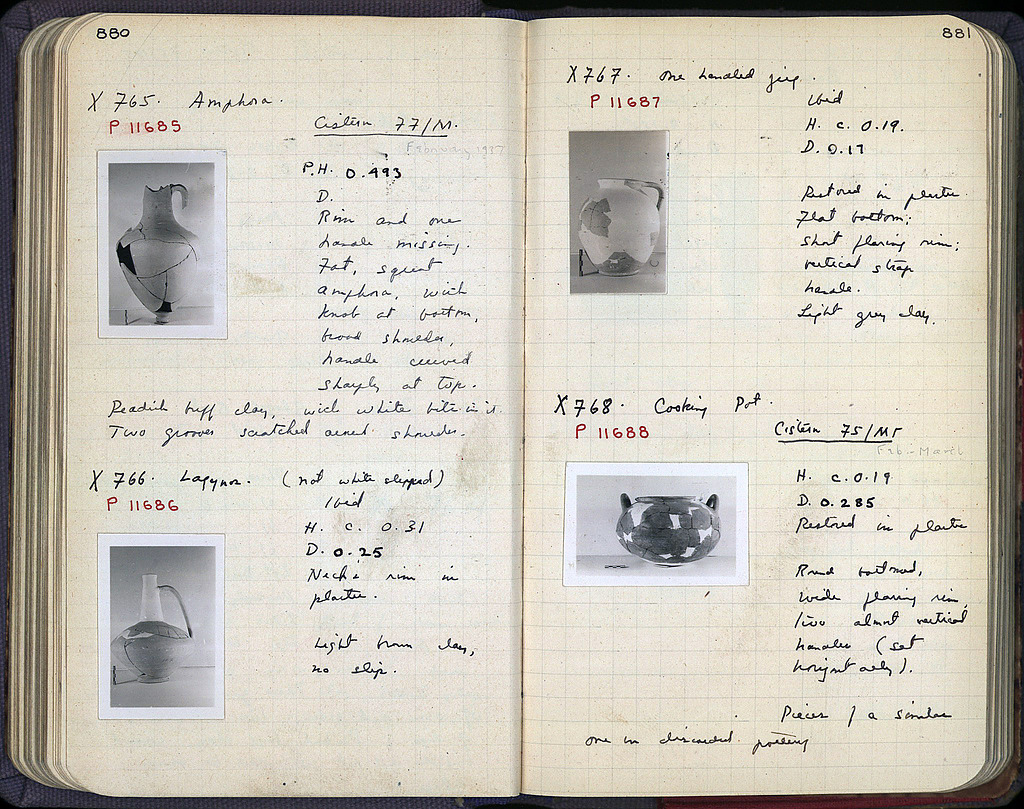 880
X 765. Amphora.
P 11685
Cistern 77/M.
February 1937
P.H. 0.493
D.
Rim and one
handle missing.
Fat, squat
amphora, with
knob at bottom,
broad shoulder,
handle curved
sharply at top.
Reddish buff clay, with white bits in it.
Two grooves scratched around shoulder.
X 766. Lagynos. (not white slipped)
P 11686
Ibid
H. c. 0.31
D. 0.25
Neck & rim in
plaster.
Light brown clay,
no slip.
881
X 767. one handled jug.
P 11687
Ibid
H. c. 0.19.
D. 0.17
Restored in plaster
Flat bottom;
short flaring rim;
vertical strap
handle.
Light grey clay.
X 768. Cooking Pot.
P 11688
Cistern 75/
Feb.-March
H. c. 0.19
D. 0.285
Restored in plaster
Round bottomed,
wide flaring rim,
two almost vertical
handles (set
horizontally).
Pieces of a similar
one in discarded pottery